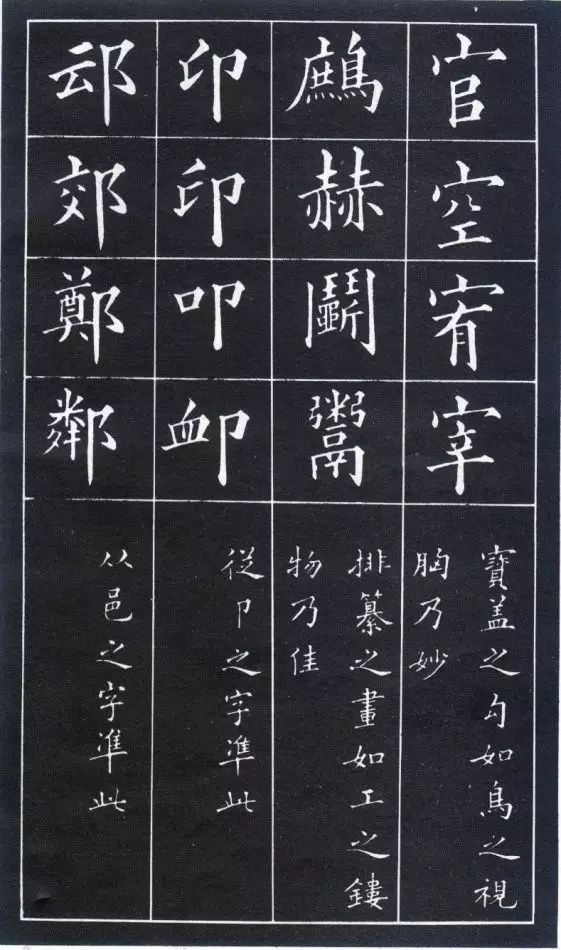 官空宥宰
寶盖之勾如鳥之視
胸乃妙
鷓赫鬬鬻
排纂之畫如工之鏤
物乃佳
印印叩卹
從卩之字準此
䢵郊鄭鄰
从邑之字準此